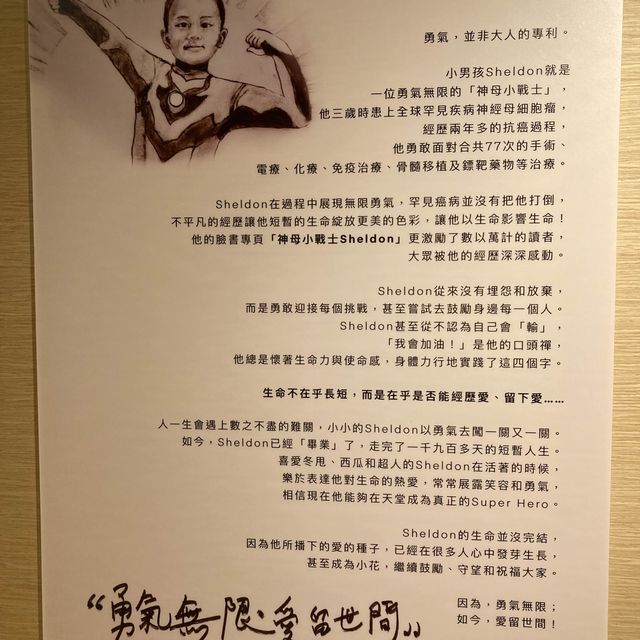 勇氣，並非大人的專利。
小男孩Sheldon就是
一位勇氣無限的「神母小戰士」，
他三歲時患上全球罕見疾病神經母細胞瘤，
經歷兩年多的抗癌過程，
他勇敢面對合共77次的手術、
電療、化療、免疫治療、骨髓移植及鏢靶藥物等治療。
Sheldon在過程中展現無限勇氣，罕見癌病並沒有把他打倒，
不平凡的經歷讓他短暫的生命綻放更美的色彩，讓他以生命影響生命！
他的臉書專頁「神母小戰士Sheldon」更激勵了數以萬計的讀者，
大眾被他的經歷深深感動。
Sheldon從來沒有埋怨和放棄，
而是勇敢迎接每個挑戰，甚至嘗試去鼓勵身邊每一個人。
Sheldon甚至從不認為自己會「輸」，
「我會加油！」是他的口頭禪，
他總是懷著生命力與使命感，身體力行地實踐了這四個字。
生命不在乎長短，而是在乎是否能經歷愛、留下愛……
人一生會遇上數之不盡的難關，小小的Sheldon以勇氣去闖一關又一關。
如今，Sheldon已經「畢業」了，走完了一千九百多天的短暫人生。
喜愛冬甩、西瓜和超人的Sheldon在活著的時候，
樂於表達他對生命的熱愛，常常展露笑容和勇氣，
相信現在他能夠在天堂成為真正的Super Hero。
Sheldon的生命並沒完結，
因為他所播下的愛的種子，已經在很多人心中發芽生長，
甚至成為小花，繼續鼓勵、守望和祝福大家。
因為，勇氣無限；
如今，愛留世間！
“勇氣無限·愛留世間”